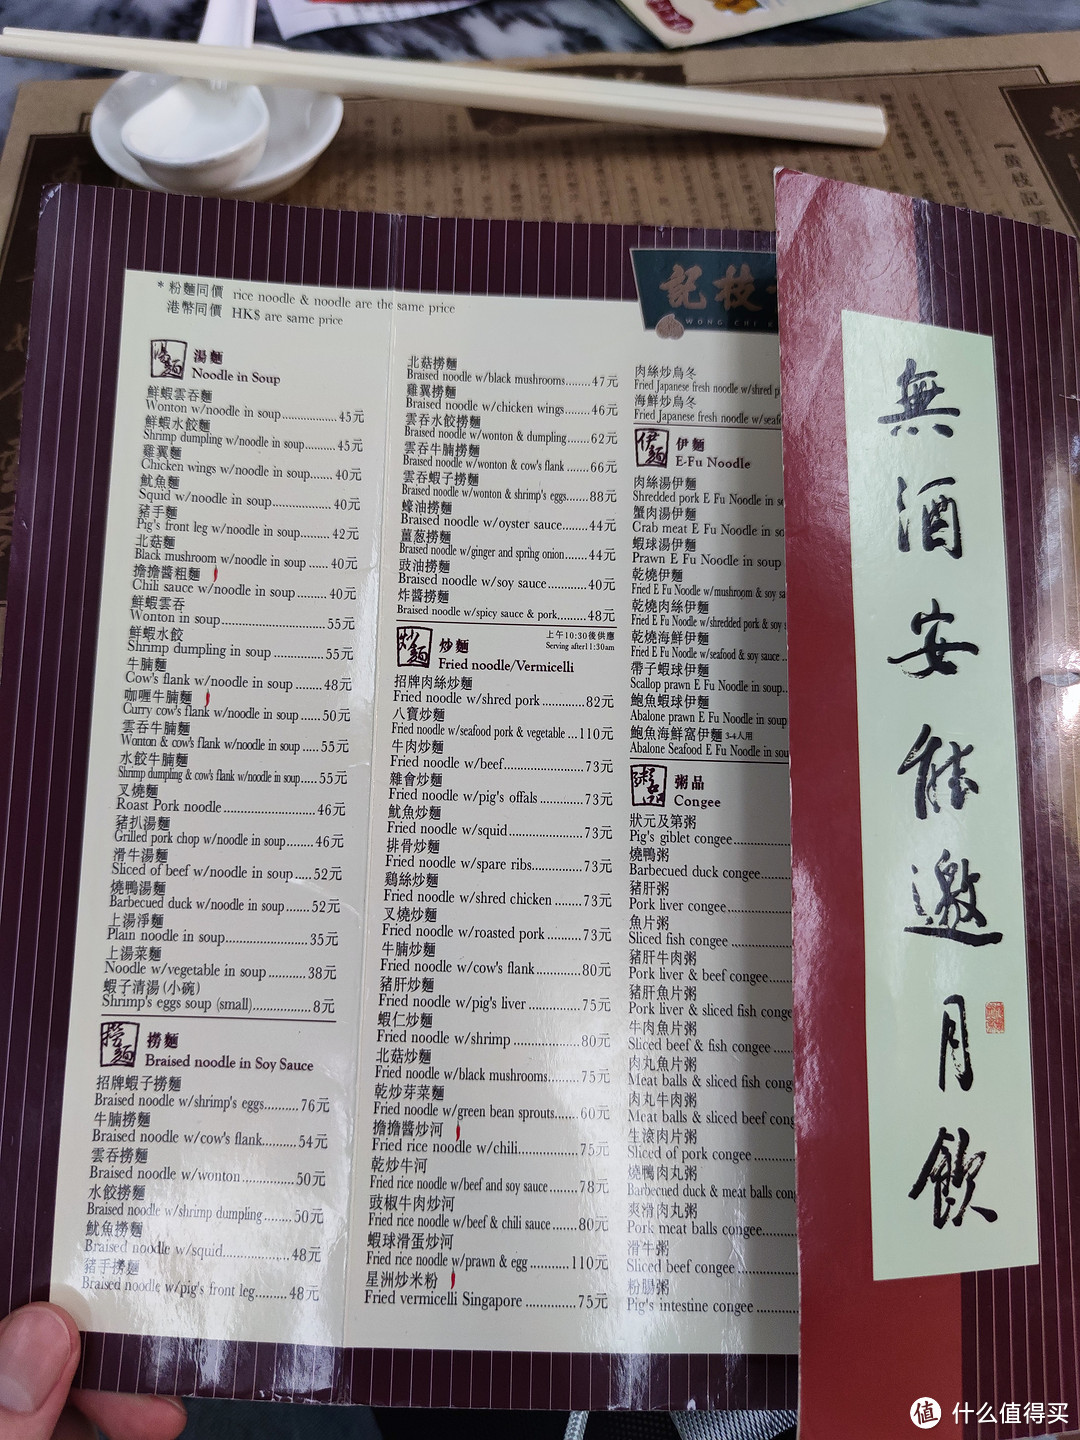 * 粉麵同價 rice noodle & noodle are the same price
港幣同價 HK$ are same price
湯麵
湯麵
Noodle in Soup
鮮蝦雲吞麵
Wonton w/noodle in soup................45元
鮮蝦水餃麵
Shrimp dumpling w/noodle in soup........45元
雞翼麵
Chicken wings w/noodle in soup.......40元
魷魚麵
Squid w/noodle in soup.................40元
豬手麵
Pig's front leg w/noodle in soup........42元
北菇麵
Black mushroom w/noodle in soup ......40元
擔擔醬粗麵
Chili sauce w/noodle in soup.........40元
鮮蝦雲吞
Wonton in soup........................55元
鮮蝦水餃
Shrimp dumpling in soup ..............55元
牛腩麵
Cow's flank w/noodle in soup ........48元
咖喱牛腩麵
Curry cow's flank w/noodle in soup ......50元
雲吞牛腩麵
Wonton & cow's flank w/noodle in soup ....55元
水餃牛腩麵
Shrimp dumpling & cow's flank w/noodle in soup.....55元
叉燒麵
Roast Pork noodle .....................46元
豬扒湯麵
Grilled pork chop w/noodle in soup........46元
滑牛湯麵
Sliced of beef w/noodle in soup.....52元
燒鴨湯麵
Barbecued duck w/noodle in soup .......52元
上湯淨麵
Plain noodle in soup......................35元
上湯菜麵
Noodle w/vegetable in soup ............38元
蝦子清湯(小碗)
Shrimp's eggs soup (small)...............8元
撈麵
撈麵
Braised noodle in Soy Sauce
招牌蝦子撈麵
Braised noodle w/shrimp's eggs..........76元
牛腩撈麵
Braised noodle w/cow's flank..........54元
雲吞撈麵
Braised noodle w/wonton...............50元
水餃撈麵
Braised noodle w/shrimp dumpling........50元
魷魚撈麵
Braised noodle w/squid..................48元
豬手撈麵
Braised noodle w/pig's front leg.........48元
北菇撈麵
Braised noodle w/black mushrooms........47元
雞翼撈麵
Braised noodle w/chicken wings.......46元
雲吞水餃撈麵
Braised noodle w/wonton & dumpling......62元
雲吞牛腩撈麵
Braised noodle w/wonton & cow's flank ......66元
雲吞蝦子撈麵
Braised noodle w/wonton & shrimp's eggs.......88元
蠔油撈麵
Braised noodle w/oyster sauce........44元
薑葱撈麵
Braised noodle w/ginger and spring onion.......44元
豉油撈麵
Braised noodle w/soy sauce...........40元
炸醬撈麵
Braised noodle w/spicy sauce & pork........48元
炒麵
炒麵
上午10:30後供應
Serving after11:30am
Fried noodle/Vermicelli
招牌肉絲炒麵
Fried noodle w/shred pork ............82元
八寶炒麵
Fried noodle w/seafood pork & vegetable ...110元
牛肉炒麵
Fried noodle w/beef......................73元
雜會炒麵
Fried noodle w/pig's offals ............73元
魷魚炒麵
Fried noodle w/squid....................73元
排骨炒麵
Fried noodle w/spare ribs..............73元
鷄絲炒麵
Fried noodle w/shred chicken ........73元
叉燒炒麵
Fried noodle w/roasted pork .........73元
牛腩炒麵
Fried noodle w/cow's flank............80元
豬肝炒麵
Fried noodle w/pig's liver ..............75元
蝦仁炒麵
Fried noodle w/shrimp ..................80元
北菇炒麵
Fried noodle w/black mushrooms........75元
乾炒芽菜麵
Fried noodle w/green bean sprouts.......60元
擔擔醬炒河
Fried rice noodle w/chili................75元
乾炒牛河
Fried rice noodle w/beef and soy sauce ........78元
豉椒牛肉炒河
Fried rice noodle w/beef & chili sauce .......80元
蝦球滑蛋炒河
Fried rice noodle w/prawn & egg ...........110元
星洲炒米粉
Fried vermicelli Singapore ..............75元
記枝
WONG CHI K
肉絲炒烏冬
Fried Japanese fresh noodle w/shred p
海鮮炒烏冬
Fried Japanese fresh noodle w/seaf
伊麵
伊麵
E-Fu Noodle
肉絲湯伊麵
Shredded pork E Fu Noodle in so
蟹肉湯伊麵
Crab meat E Fu Noodle in so
蝦球湯伊麵
Prawn E Fu Noodle in soup
乾燒伊麵
Fried E Fu Noodle w/mushroom & soy sa
乾燒肉絲伊麵
Fried E Fu Noodle w/shredded pork & soy s
乾燒海鮮伊麵
Fried E Fu Noodle w/seafood & soy sauce ..
帶子蝦球伊麵
Scallop prawn E Fu Noodle in soup..
鮑魚蝦球伊麵
Abalone prawn E Fu Noodle in soup
鮑魚海鮮窩伊麵 3-4人用
Abalone Seafood E Fu Noodle in sou
粥品
粥品
Congee
狀元及第粥
Pig's giblet congee...............
燒鴨粥
Barbecued duck congee........
豬肝粥
Pork liver congee..................
魚片粥
Sliced fish congee .................
豬肝牛肉粥
Pork liver & beef congee......
豬肝魚片粥
Pork liver & sliced fish congee
牛肉魚片粥
Sliced beef & fish congee .....
肉丸魚片粥
Meat balls & sliced fish cong
肉丸牛肉粥
Meat balls & sliced beef cong
生滾肉片粥
Sliced of pork congee ...........
燒鴨肉丸粥
Barbecued duck & meat balls con
爽滑肉丸粥
Pork meat balls congee.........
滑牛粥
Sliced beef congee ...............
粉腸粥
Pig's intestine congee ...........
無酒安能邀月飲
黃枝記
值 什么值得买